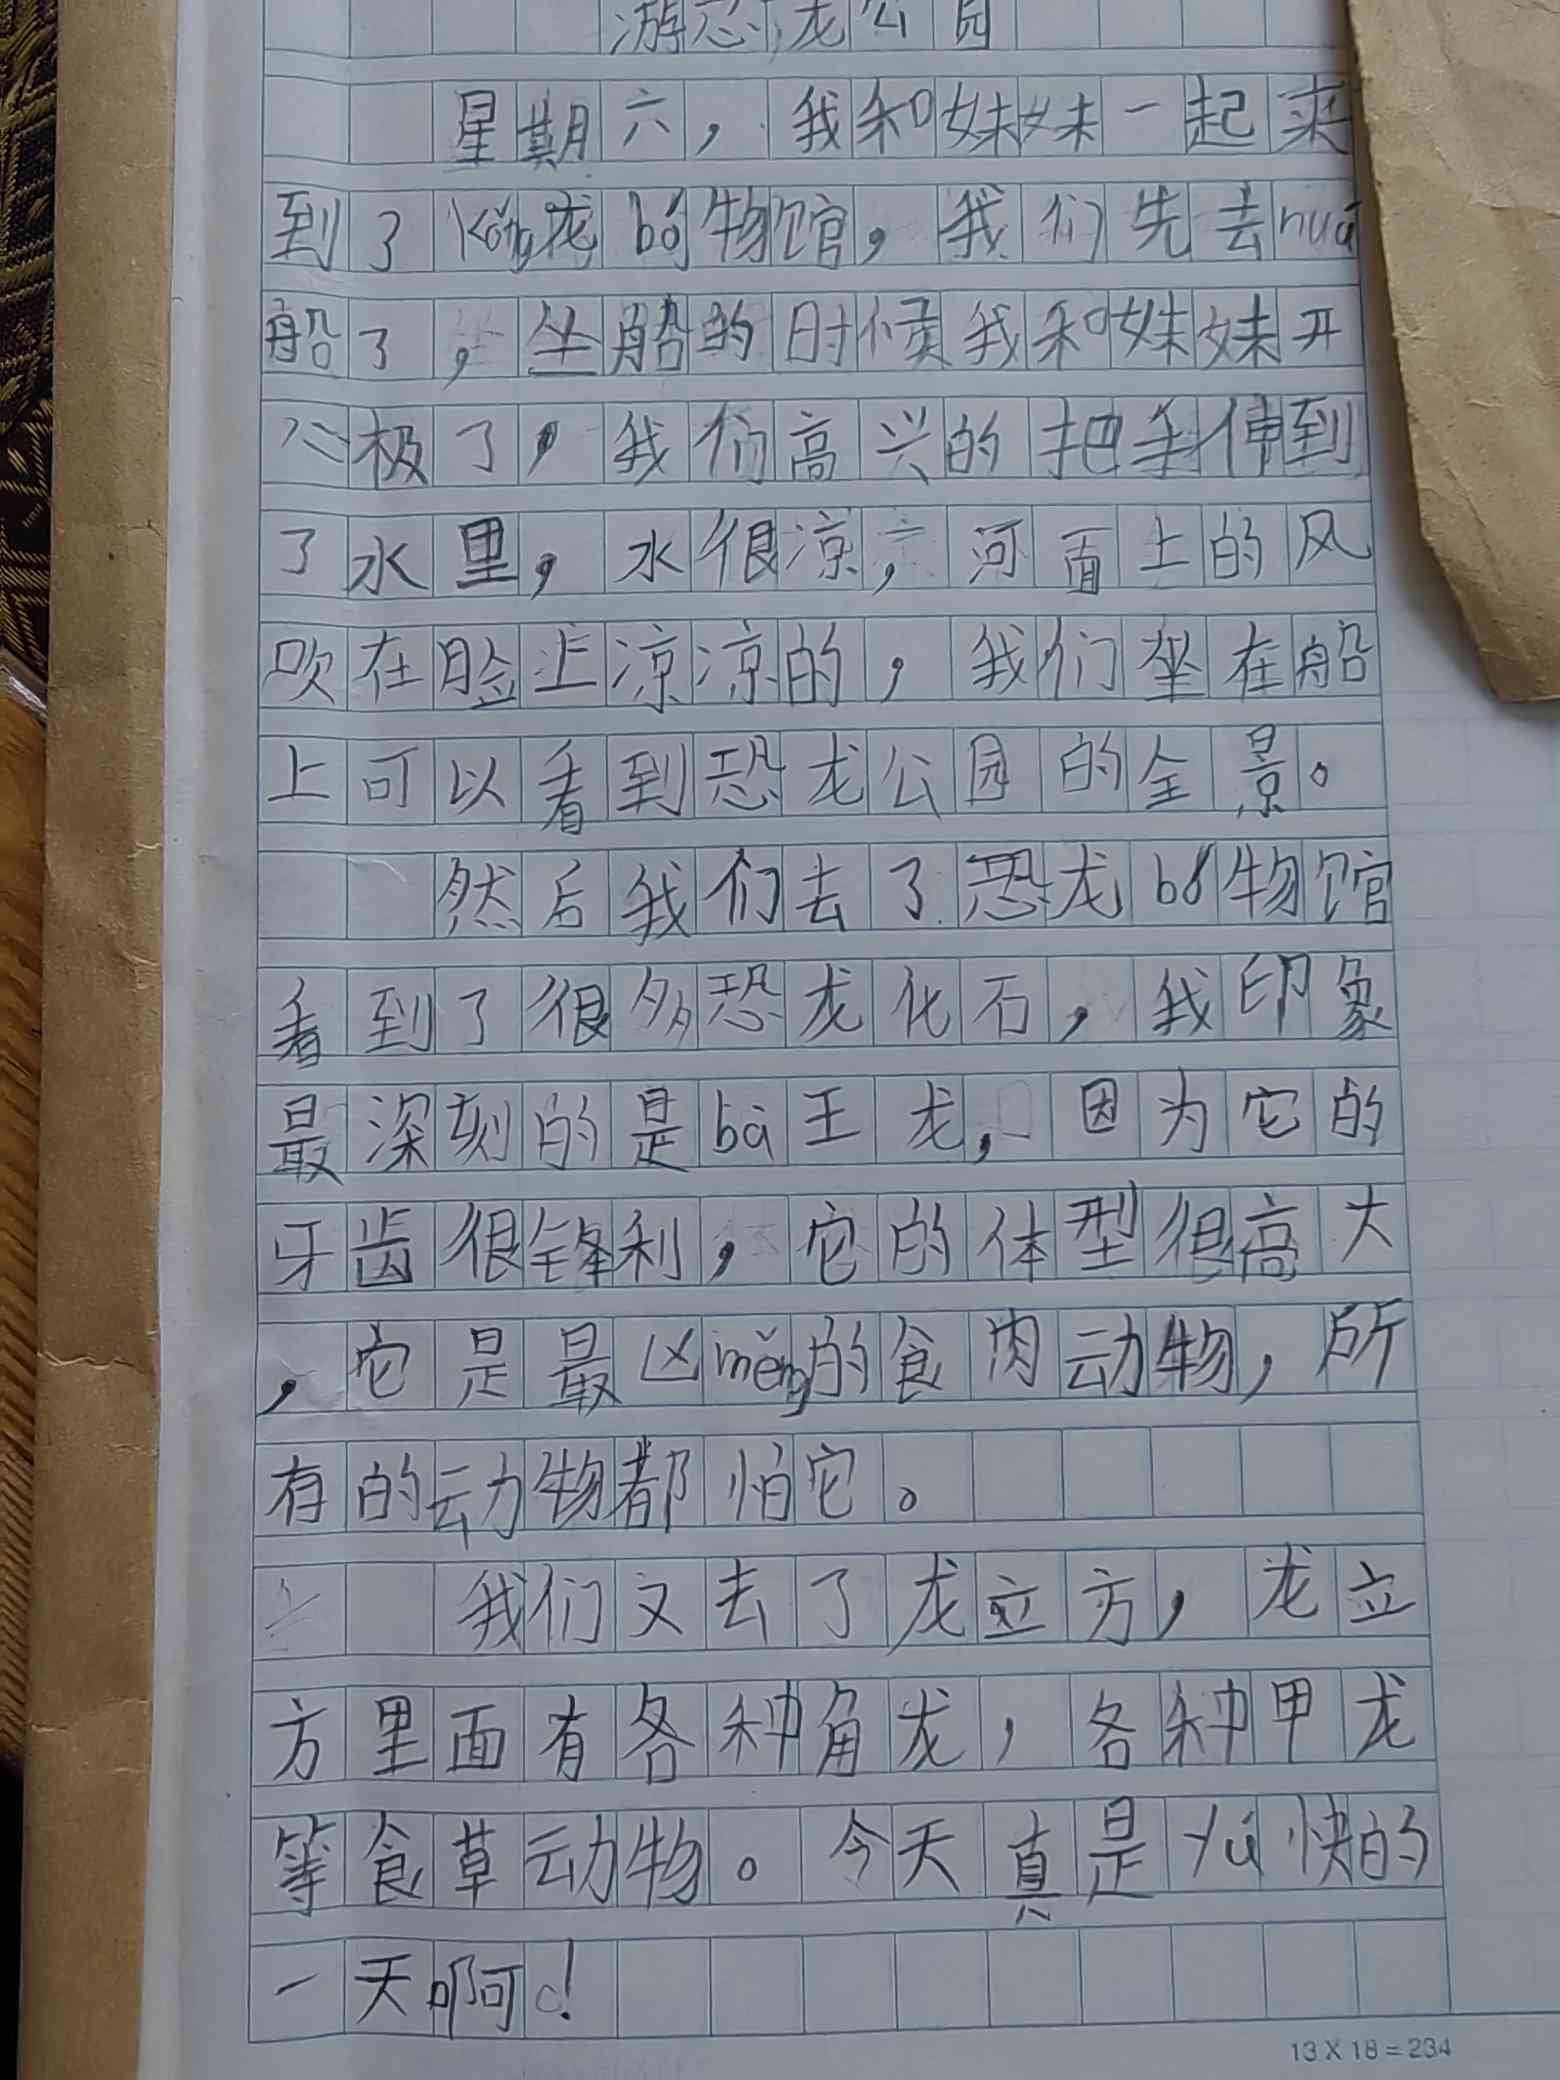 游恐龙公园
星期六，我和妹妹一起来
到了kǒng龙bó物馆，我们先去huá
船了，坐船的时候我和妹妹开
心极了，我们高兴的把手伸到
了水里，水很凉，河面上的风
吹在脸上凉凉的，我们坐在船
上可以看到恐龙公园的全景。
然后我们去了恐龙bó物馆
看到了很多恐龙化石，我印象
最深刻的是bà王龙，因为它的
牙齿很锋利，它的体型很高大
，它是最凶měng的食肉动物，所
有的动物都怕它。
我们又去了龙立方，龙立
方里面有各种角龙，各种甲龙
等食草动物。今天真是yú快的
一天啊！
13 X 18 = 234